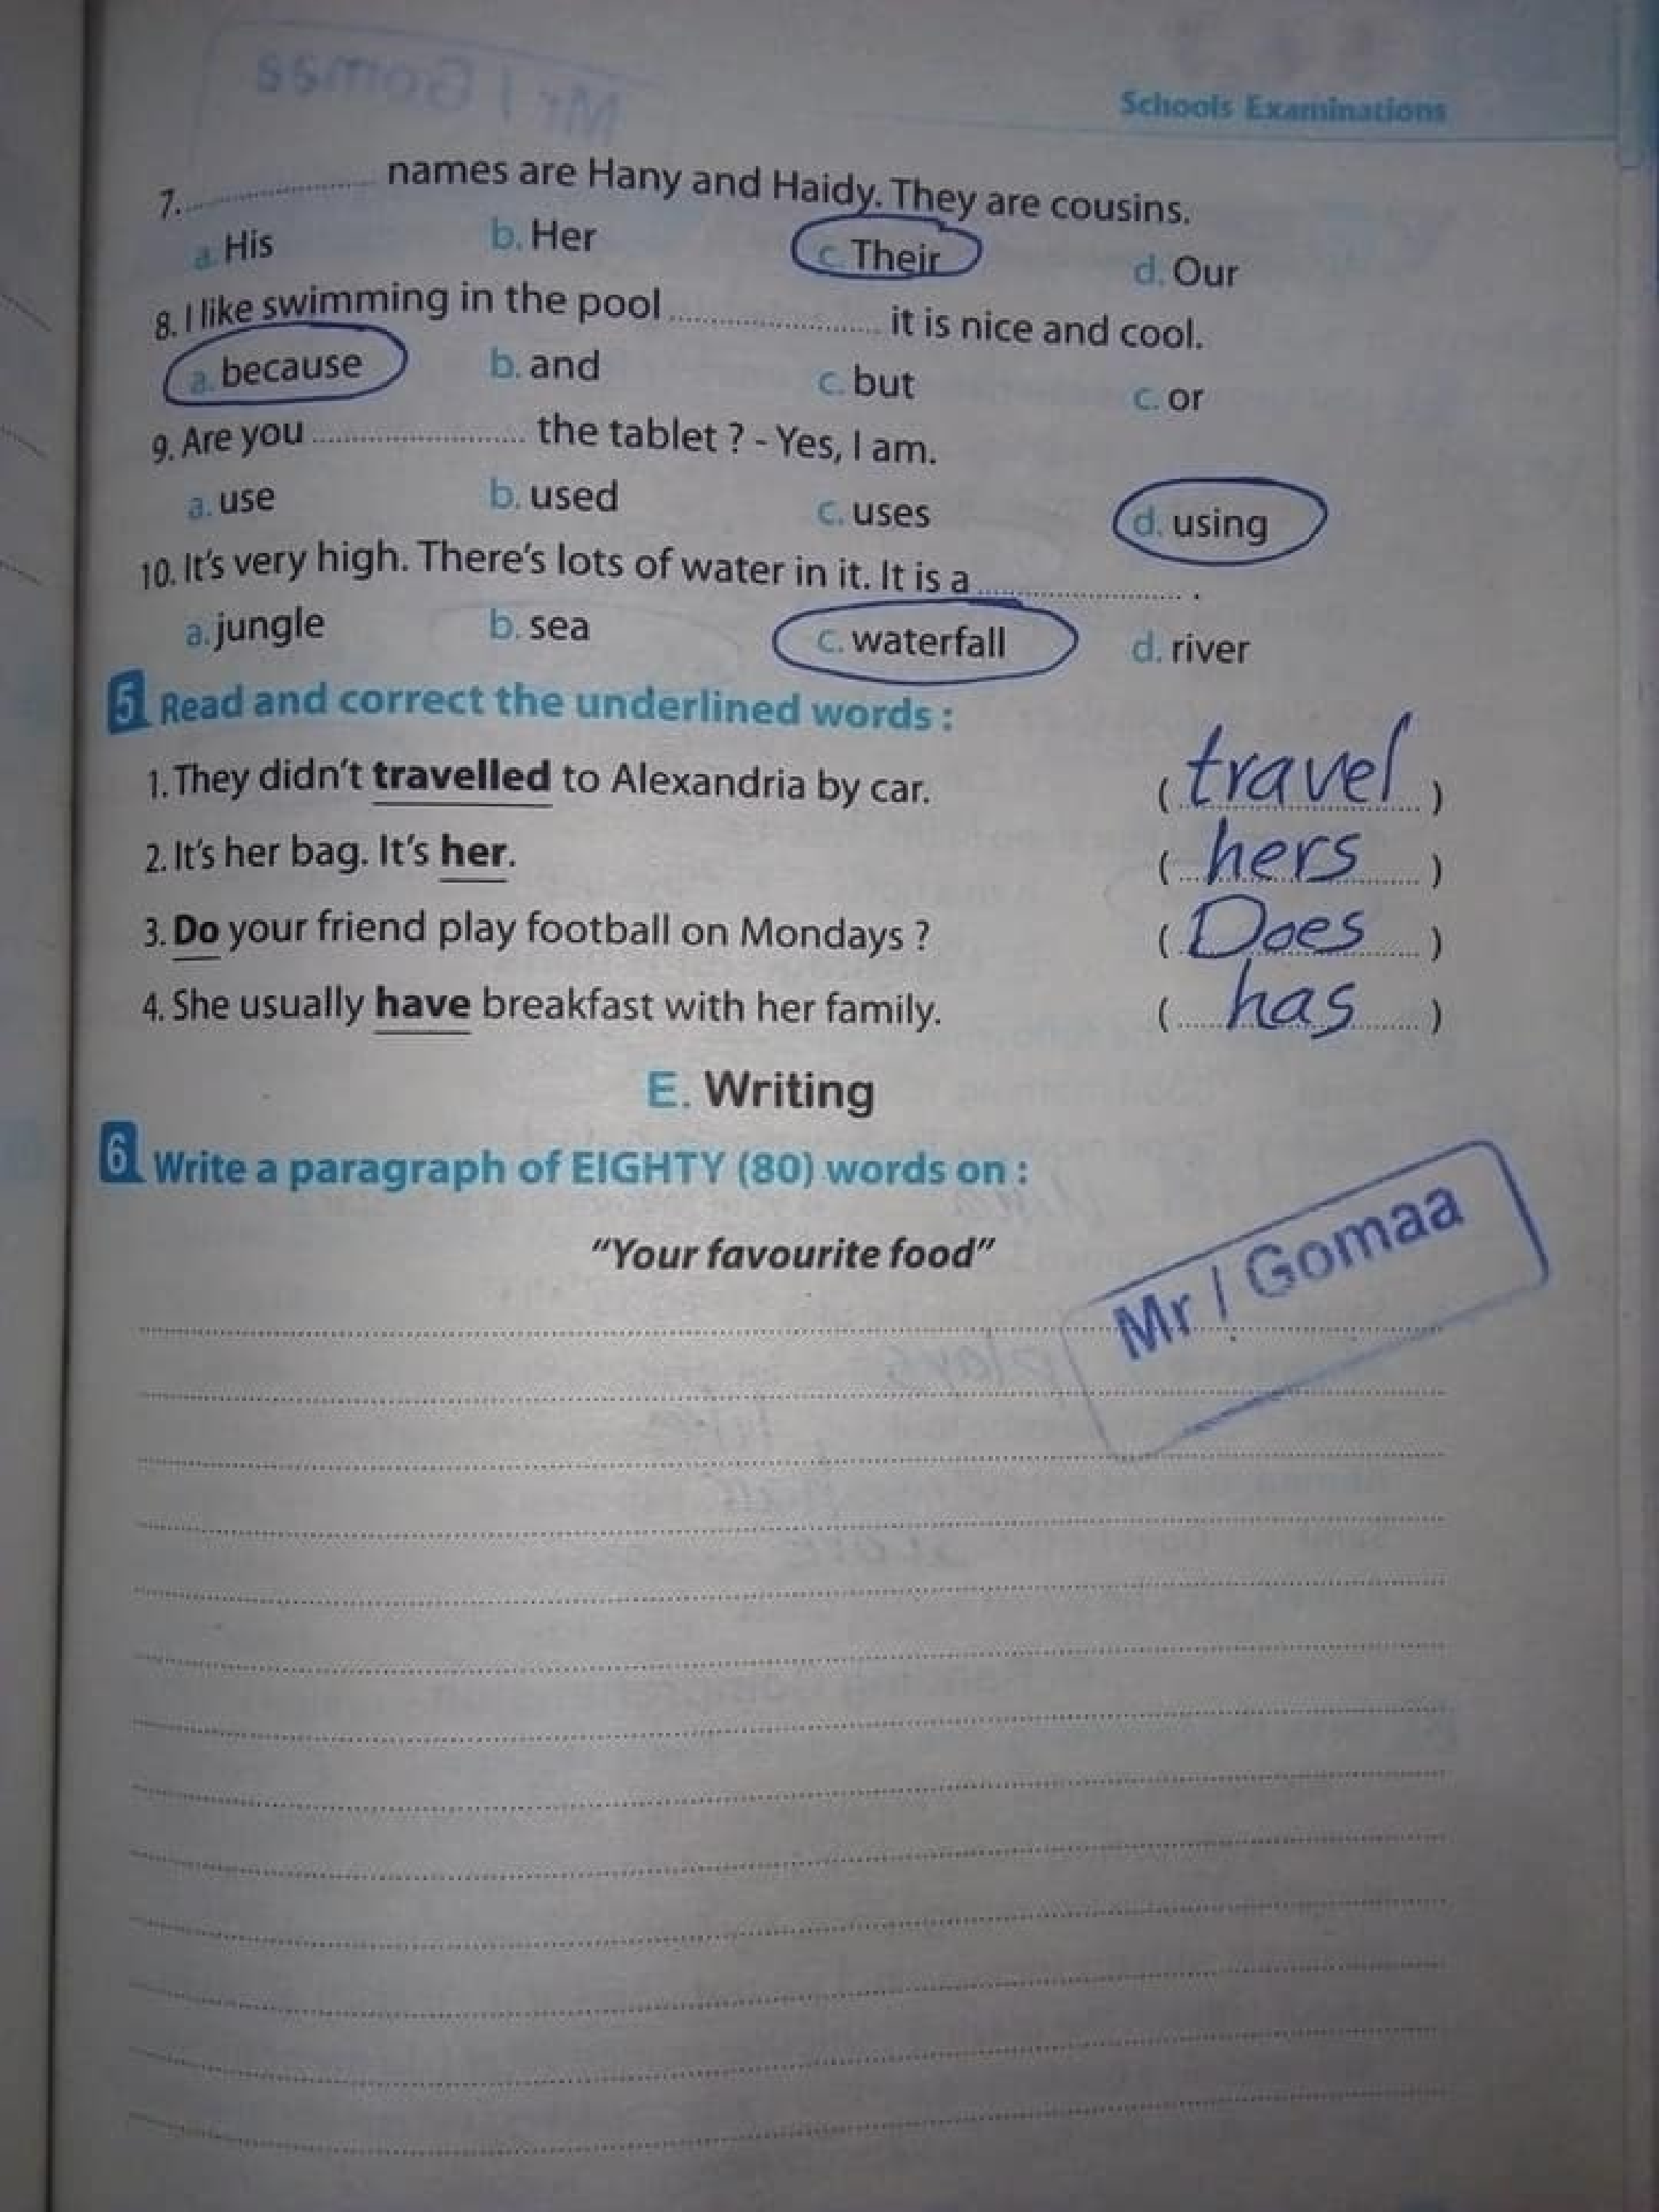 Mr / Gomaa
Schools Examinations
7. .................... names are Hany and Haidy. They are cousins.
a. His b. Her c. Their d. Our
8. I like swimming in the pool .................... it is nice and cool.
a. because b. and c. but c. or
9. Are you .................... the tablet ? - Yes, I am.
a. use b. used c. uses d. using
10. It's very high. There's lots of water in it. It is a .................... .
a. jungle b. sea c. waterfall d. river
5 Read and correct the underlined words :
1. They didn't travelled to Alexandria by car. ( travel )
2. It's her bag. It's her. ( hers )
3. Do your friend play football on Mondays ? ( Does )
4. She usually have breakfast with her family. ( has )
E. Writing
6 Write a paragraph of EIGHTY (80) words on :
"Your favourite food"
Mr / Gomaa